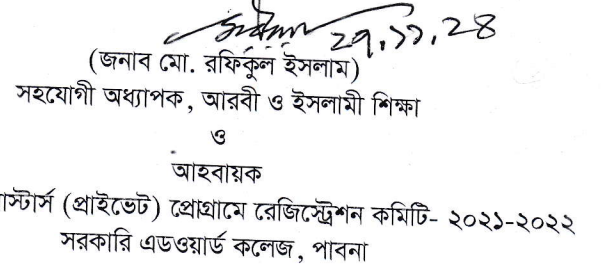 ২৭.১১.২৪
(জনাব মো. রফিকুল ইসলাম)
সহযোগী অধ্যাপক, আরবী ও ইসলামী শিক্ষা
ও
আহবায়ক
(প্রাইভেট) প্রোগ্রামে রেজিস্ট্রেশন কমিটি- ২০২১-২০২২
সরকারি এডওয়ার্ড কলেজ, পাবনা